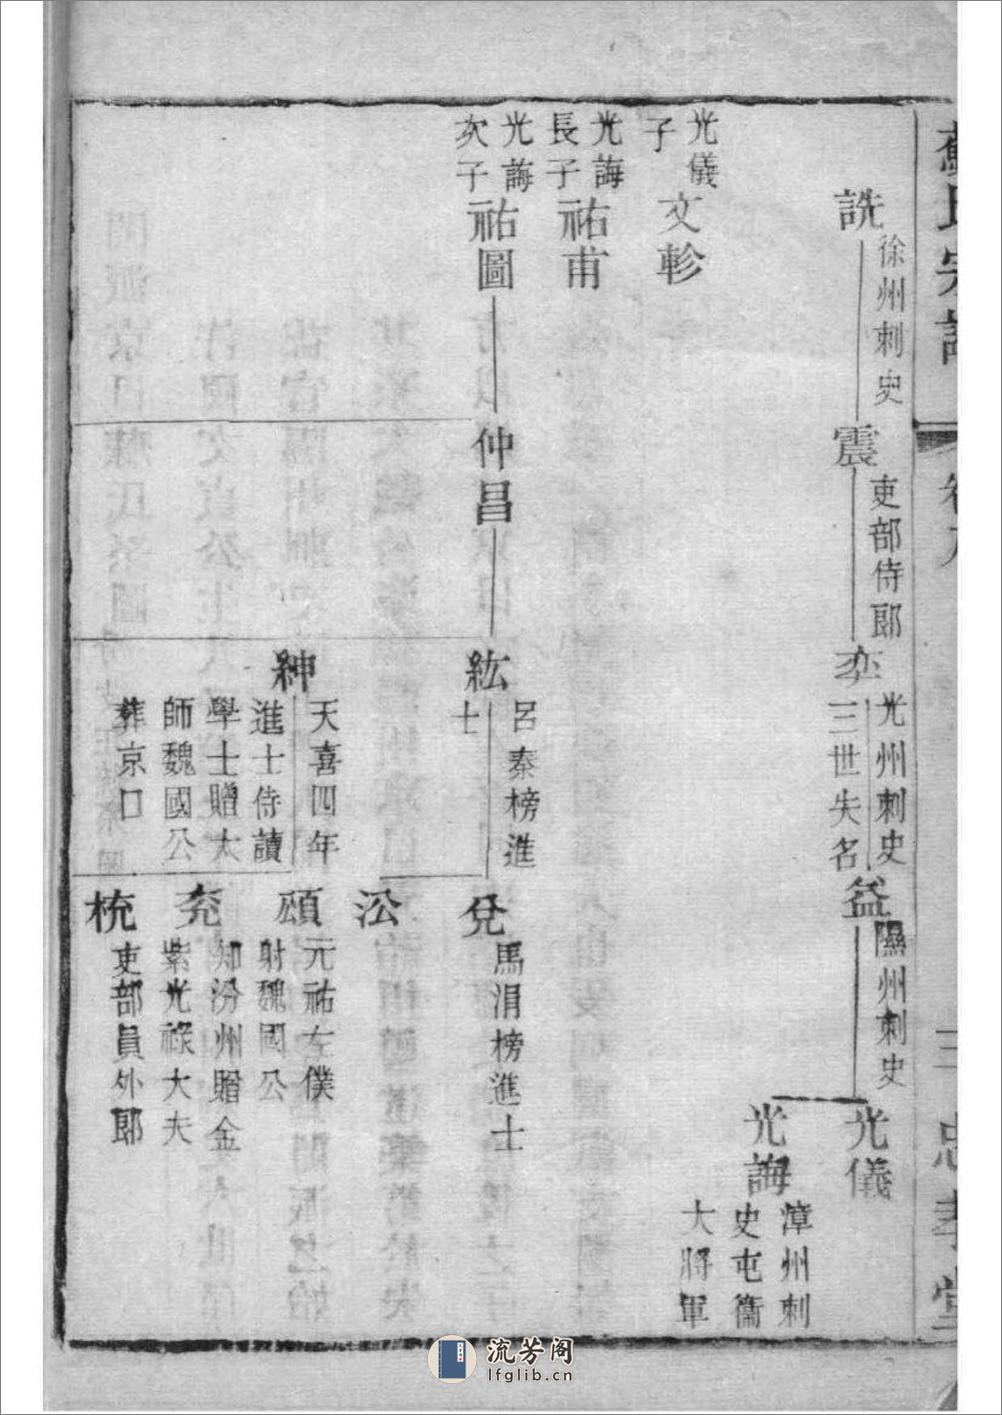 蘇氏宗譜
卷
三
忠孝堂
詵
徐州刺史
震
吏部侍郎
奕
光州刺史
三世失名
益
隰州刺史
光儀
光誨
漳州刺
史屯衞
大將軍
光儀
子
文軫
光誨
長子
祐甫
光誨
次子
祐圖
仲昌
紘
呂秦榜進
士
紳
天喜四年
進士侍讀
學士贈太
師魏國公
葬京口
兌
馬涓榜進士
㳂
頌
元祐左僕
射魏國公
兖
知汾州贈金
紫光祿大夫
梲
吏部員外郎
流芳阁
lfglib.cn